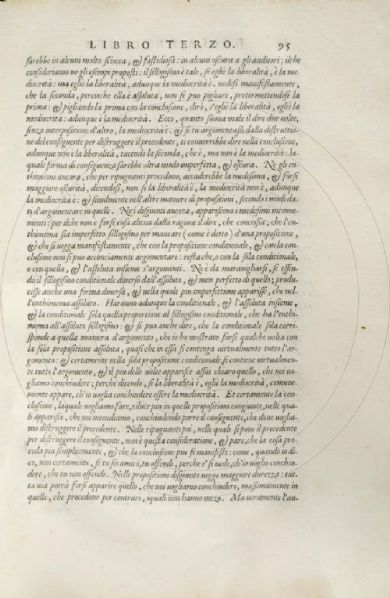 LIBRO TERZO. 95
sarebbe in alcuni molto sciocca, & fastidiosa: in alcuni oscura a gli auditori; ilche
consideriamo ne gli esempi proposti: il sillogismo è tale, se egli è la liberalità, è la me
diocrità: ma egli è la liberalità, adunque la mediocrità. uedesi manifestamente,
che la seconda, percioche ella è assoluta, non si può pigliare, pretermettendosi la
prima: & pigliando la prima con la conclusione, dirò, s'egli è la liberalità, egli è la
mediocrità: adunque è la mediocrità. Ecco, quanto suona male il dire due uolte,
senza interpositione d'altro, la mediocrità è. & se tu argomentassi dalla distruttio-
ne del conseguente per distruggere il precedente, ti conuerrebbe dire nella conclusione,
adunque non è la liberalità, tacendo la seconda, che è, ma non è la mediocrità: la-
quale forma di conseguenza sarebbe oltra modo imperfetta, & oscura. Ne gli en-
thimemi ancora, che per ripugnanti procedono, accaderebbe la medesima, & forse
maggiore oscurità, dicendosi, non se la liberalità è, la mediocrità non è, adunque
la mediocrità è: & similmente nell'altre maniere di propositioni, secondo i modi da-
ti d'argomentare in quelle. Ne i disgiunti ancora, apparirebbono i medesimi incomo-
menti: perche non è forse cosa aliena dalla ragione il dire, che concessa, che l'en-
thimema sia imperfetto sillogismo per mancare (come è detto) d'una propositione,
& che si uegga manifestamente, che con la propositione conditionale, & con la con-
clusione non si può acconciamente argomentare: resta che, o con la sola conditionale,
o con quella, & l'assoluta insieme s'argomenti. Ne è da marauigliarsi, se essen-
do il sillogismo conditionale diuerso dall'assoluto, & men perfetto di quello; produ-
cesse anche una forma diuersa, & nella quale piu imperfettione apparisse, che nel-
l'enthimema assoluto. Haranno adunque la conditionale, & l'assoluta insieme,
& la conditionale sola quella proportione al sillogismo conditionale, che ha l'enthi-
mema all'assoluto sillogismo: & si può anche dire, che la conditionale sola corri-
sponde a quella maniera d'argomento, che io ho mostrato farsi qualche uolta con
la sola propositione assoluta, quasi che in essa si contenga uirtualmente tutto l'ar-
gomento: & certamente nella sola propositione conditionale si contiene uirtualmen-
te tutto l'argomento, & il piu delle uolte apparisce assai chiaro quello, che noi uo-
gliamo conchiudere; perche dicendo, se la liberalità è, egli è la mediocrità, comune-
mente appare, ch'io uoglia conchiudere essere la mediocrità. Et certamente la con-
clusione, laquale uogliamo fare, riluce piu in quelle propositioni congiunte, nelle qua-
li apparisce, che noi intendiamo, conchiudendo porre il conseguente, che doue uoglia-
mo distruggere il precedente. Nelle ripugnanti poi, nelle quali si pone il precedente
per distruggere il conseguente, non è questa consideratione, & pare, che la cosa pro-
ceda piu semplicemente, & che la conclusione piu si manifesti: come, quando io di-
co, non certamente, se tu sei amico, tu offendi, perche e' si uede, ch'io uoglio conchiu-
dere, che tu non offendi. Nelle propositioni disgiunte ueggo maggiore durezza: tut-
ta uia potrà forse apparire quello, che noi uogliamo conchiudere, massimamente in
quelle, che procedono per contrari, i quali non hanno mezo. Ma ueramente l'au-